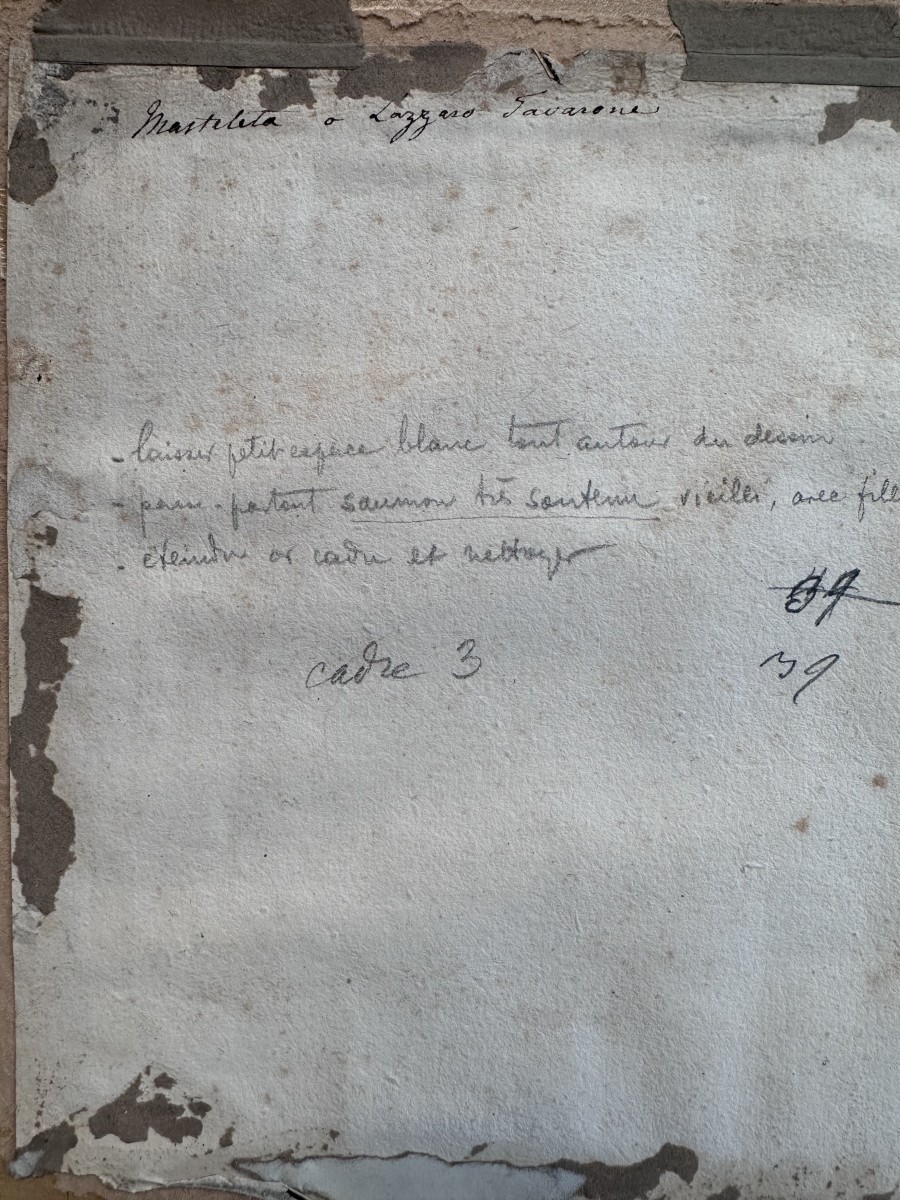 Masteleta o Lazzaro Tavarone
- laisser petit espace blanc tout autour du dessin
- pass-partout saumon très soutenu vieilli, avec fill
- éteindre or cadre et nettoyer
39
cadre 3 39